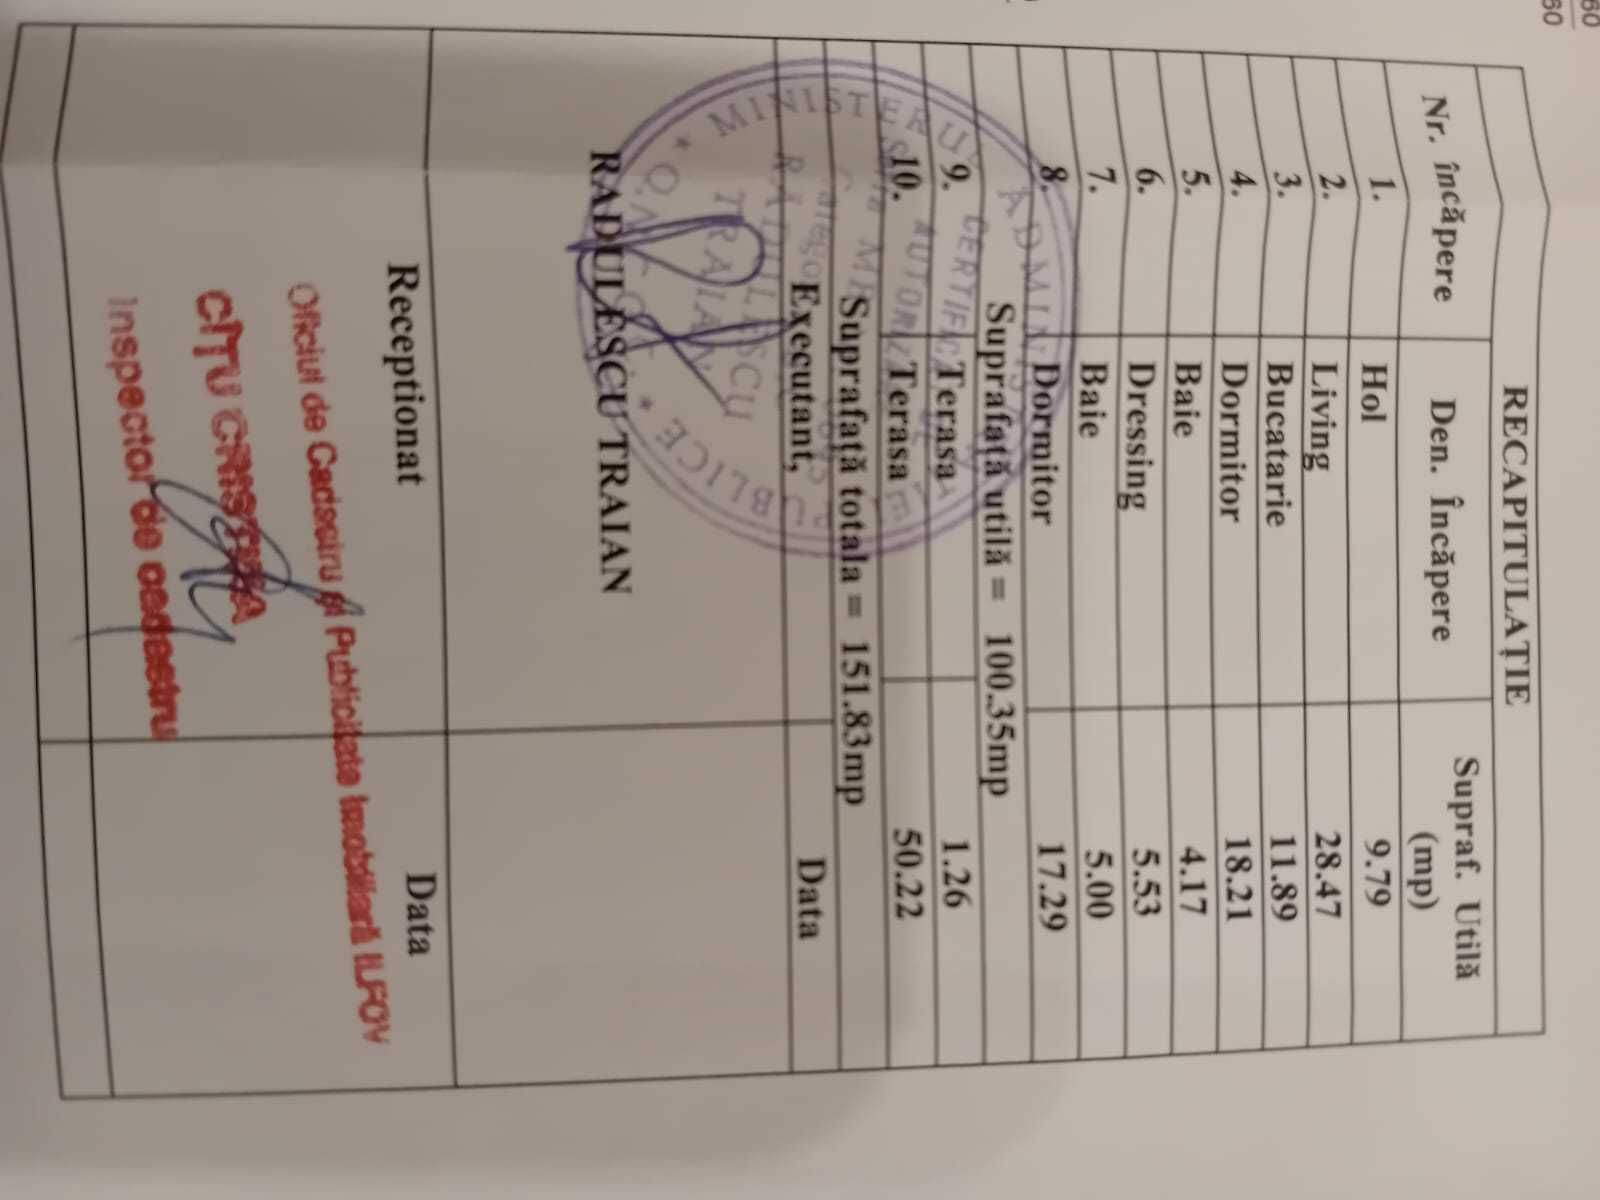 60
60
RECAPITULAȚIE
Nr. încăpere Den. Încăpere Supraf. Utilă (mp)
1. Hol 9.79
2. Living 28.47
3. Bucatarie 11.89
4. Dormitor 18.21
5. Baie 4.17
6. Dressing 5.53
7. Baie 5.00
8. Dormitor 17.29
Suprafață utilă = 100.35mp
9. Terasa 1.26
10. Terasa 50.22
Suprafață totala = 151.83mp
Executant, Data
RADULESCU TRAIAN
CERTIFICAT DE
AUTORIZ
RĂDULESCU
TRAIAN
Receptionat Data
Oficiul de Cadastru și Publicitate Imobiliară ILFOV
CÎȚU CRISTINA
Inspector de cadastru